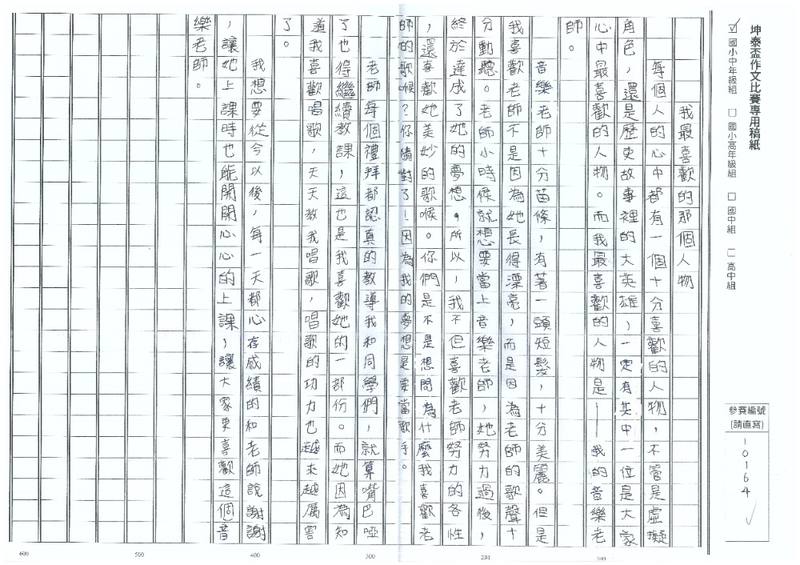 坤泰盃作文比賽專用稿紙
☑ 國小中年級組 □ 國小高年級組 □ 國中組 □ 高中組
參賽編號
(請直寫)
10164
我最喜歡的那個人物
每個人的心中都有一個十分喜歡的人物，不管是虛擬
角色，還是歷史故事裡的大英雄，一定有其中一位是大家
心中最喜歡的人物。而我最喜歡的人物是——我的音樂老
師。
音樂老師十分苗條，有著一頭短髮，十分美麗。但是
我喜歡老師不是因為她長得漂亮，而是因為老師的歌聲十
分動聽。老師小時候就想要當上音樂老師，她努力過後，
終於達成了她的夢想。所以，我不但喜歡老師努力的各性
，還喜歡她美妙的歌喉。你們是不是想問為什麼我喜歡老
師的歌喉？你猜對了！因為我的夢想是要當歌手。
老師每個禮拜都認真的教導我和同學們，就算嘴巴啞
了也得繼續教課，這也是我喜歡她的一部份。而她因為知
道我喜歡唱歌，天天教我唱歌，唱歌的功力也越來越厲害
了。
我想要從今以後，每一天都心存感績的和老師說謝謝
，讓她上課時也能開開心心的上課，讓大家更喜歡這個音
樂老師。
100
200
300
400
500
600